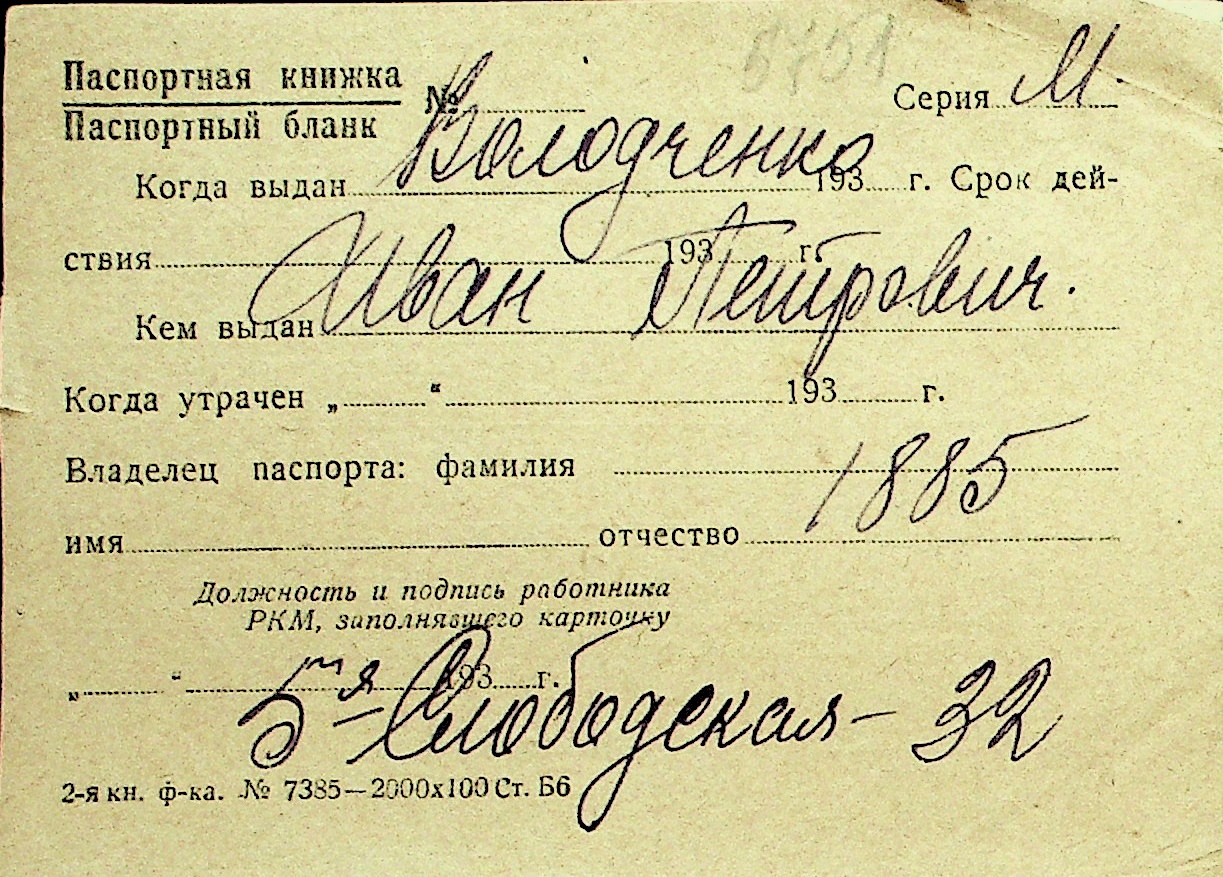 6751
Паспортная книжка
Паспортный бланк
№ Серия М.
Володченко
Когда выдан 193 г. Срок дей-
ствия 193 г.
Иван Петрович.
Кем выдан
Когда утрачен „ “ 193 г.
Владелец паспорта: фамилия
1885
имя отчество
Должность и подпись работника
РКМ, заполнявшего карточку
„ “ 193 г.
5тя - Слободская - 32
2-я кн. ф-ка. № 7385—2000х100 Ст. Б6